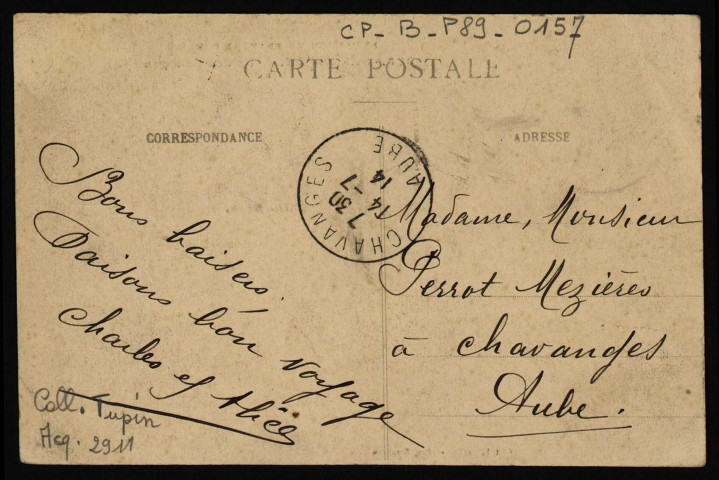 CP-B-P89-0157
CARTE POSTALE
CORRESPONDANCE
ADRESSE
CHAVANGES
AUBE
7 30
14-7
14
Bons baisers.
Faisons bon voyage
Charles et Alice
Madame, Monsieur
Perrot Mezières
à Chavanges
Aube.
Coll. Tupin
Acq. 2911